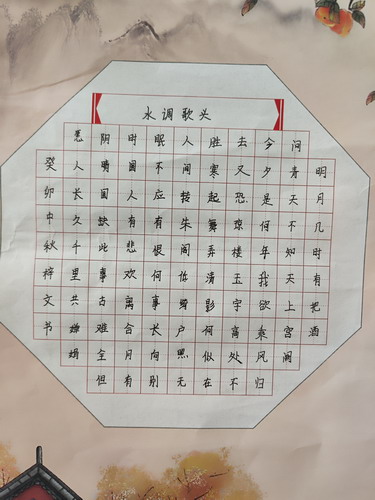 水调歌头
明月几时有把酒
问青天不知天上宫阙
今夕是何年我欲乘风归
去又恐琼楼玉宇高处不
胜寒起舞弄清影何似在
人间转朱阁低绮户照无
眠不应有恨何事长向别
时圆人有悲欢离合月有
阴晴圆缺此事古难全但
愿人长久千里共婵娟
癸卯中秋梓文